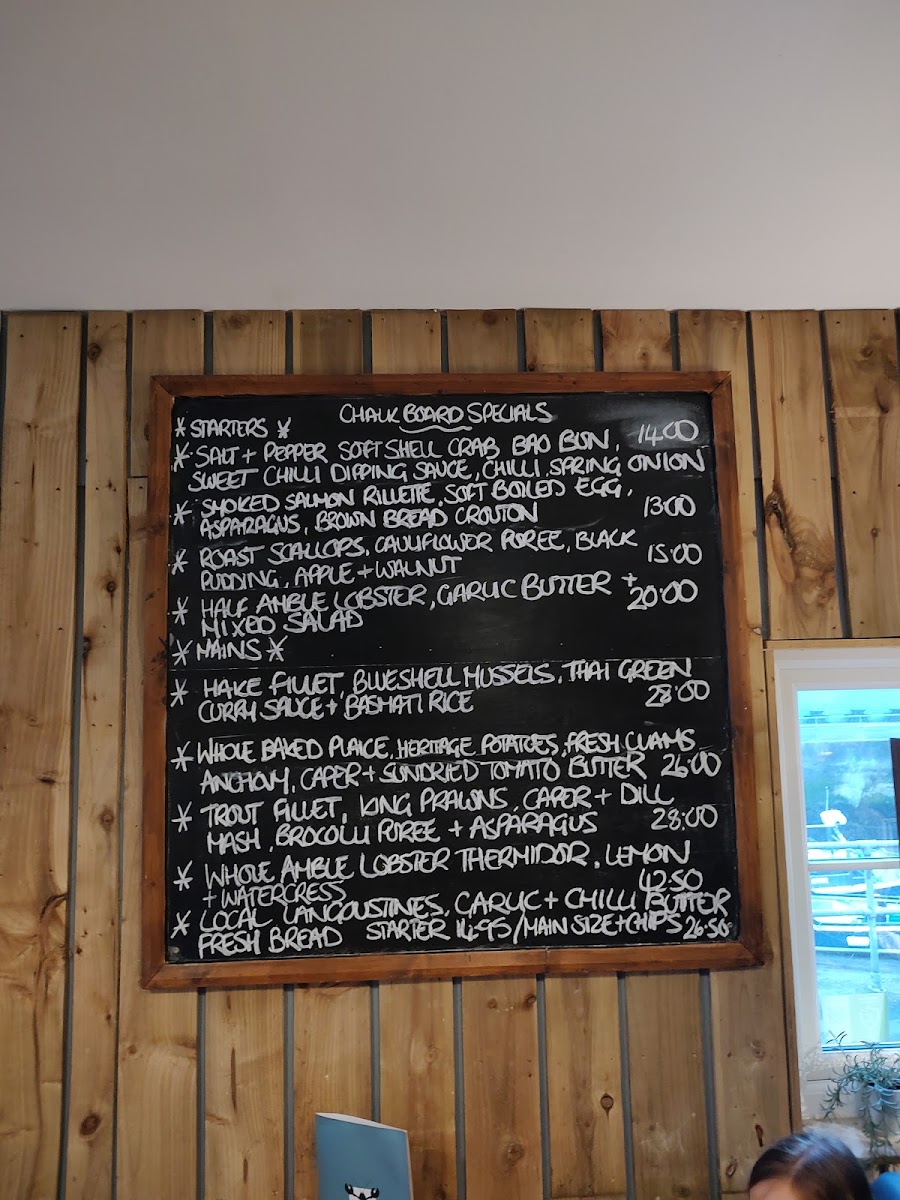 CHALK BOARD SPECIALS
* STARTERS *
* SALT + PEPPER SOFT SHELL CRAB BAO BUN, 14.00
SWEET CHILLI DIPPING SAUCE, CHILLI, SPRING ONION
* SMOKED SALMON RILLETTE, SOFT BOILED EGG,
ASPARAGUS, BROWN BREAD CROUTON 13.00
* ROAST SCALLOPS, CAULIFLOWER PUREE, BLACK
PUDDING, APPLE + WALNUT 15.00
* HALF AMBLE LOBSTER, GARLIC BUTTER +
MIXED SALAD 20.00
* MAINS *
* HAKE FILLET, BLUESHELL MUSSELS, THAI GREEN
CURRY SAUCE + BASMATI RICE 28.00
* WHOLE BAKED PLAICE, HERITAGE POTATOES, FRESH CLAMS
ANCHOVY, CAPER + SUNDRIED TOMATO BUTTER 26.00
* TROUT FILLET, KING PRAWNS, CAPER + DILL
MASH, BROCOLLI PUREE + ASPARAGUS 28.00
* WHOLE AMBLE LOBSTER THERMIDOR, LEMON
+ WATERCRESS 42.50
* LOCAL LANGOUSTINES, GARLIC + CHILLI BUTTER
FRESH BREAD STARTER 14.95 / MAIN SIZE + CHIPS 26.50